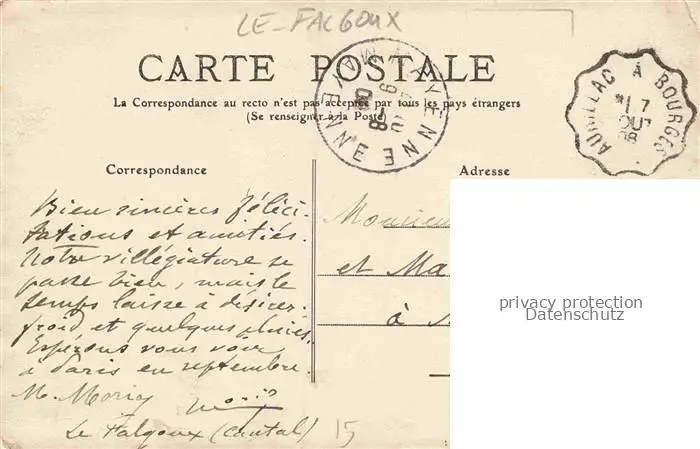 LE-FALGOUX
CARTE POSTALE
La Correspondance au recto n'est pas acceptée par tous les pays étrangers
(Se renseigner à la Poste)
MAYENNE MAYENNE
AURILLAC À BOURGES
Correspondance
Adresse
Bien sincères félici-
tations et amitiés.
Notre villégiature se
passe bien, mais le
temps laisse à désirer,
froid et quelques pluies.
Espérons vous voir
à Paris en septembre.
M.
Le Falgoux (Cantal)
15
Monsieur
et Ma
à
privacy protection
Datenschutz